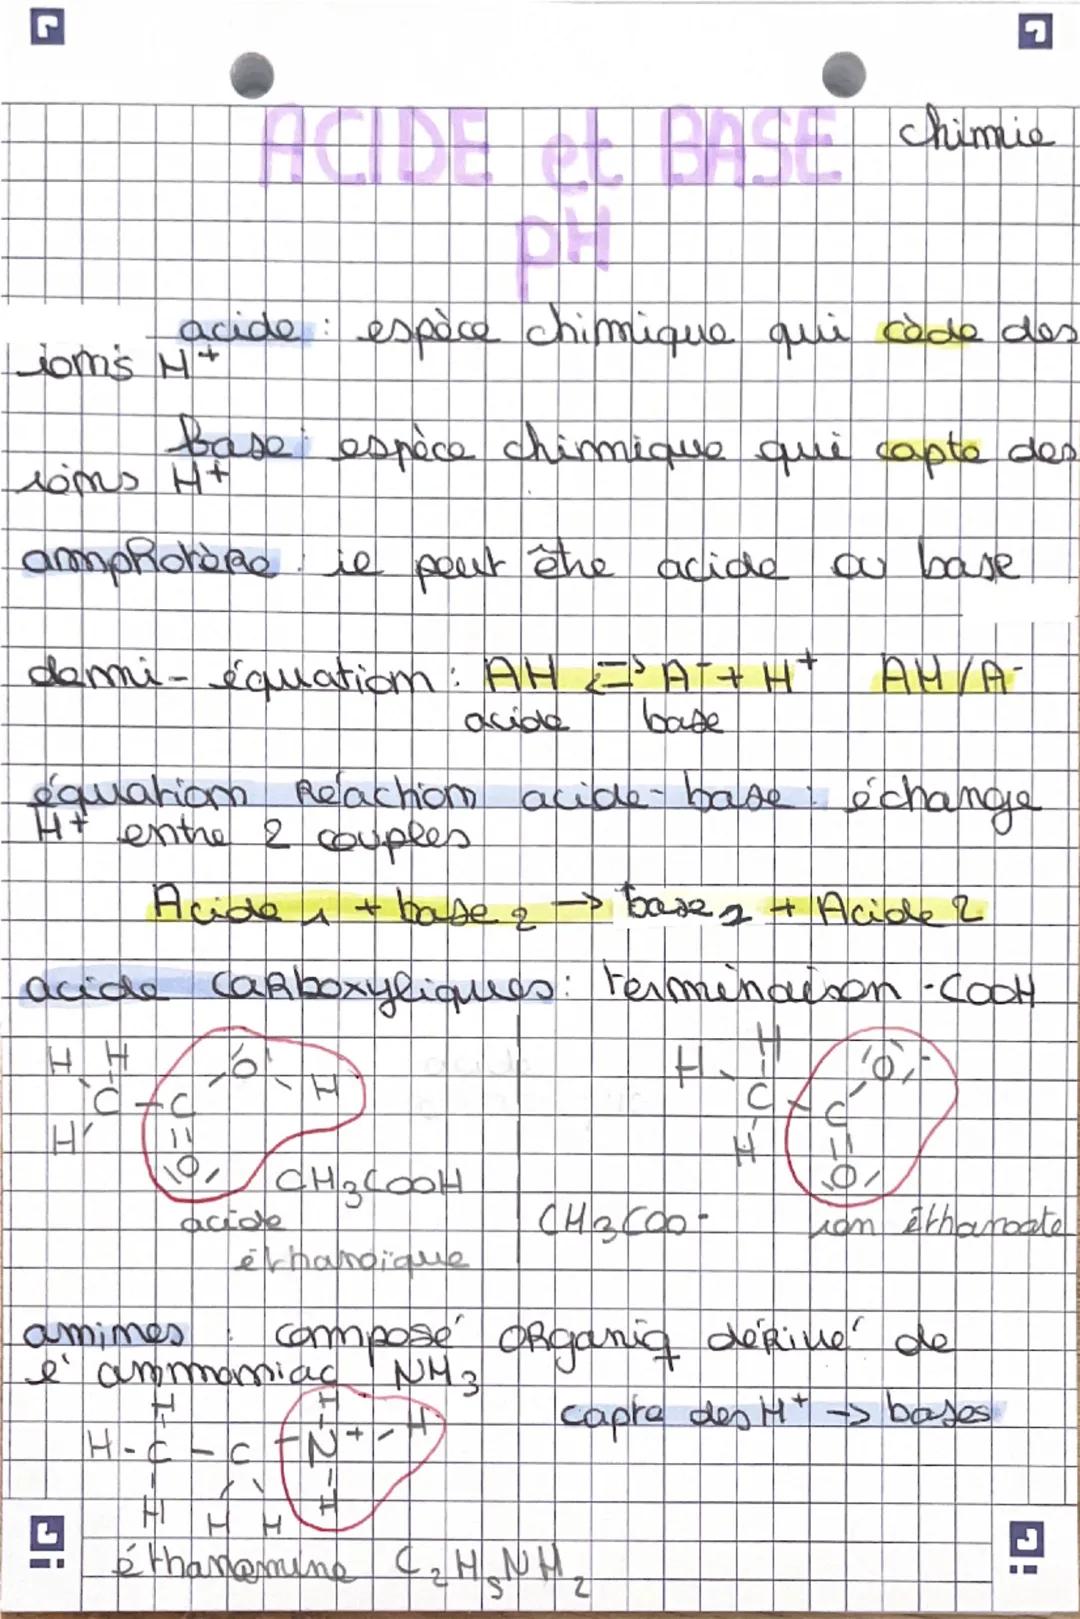 chimie
ACIDE et BASE
pH
acide : espèce chimique qui cède des
ions H+
base : espèce chimique qui capte des
ions H+
amphotère : il peut être acide ou base
demi-équation : AH ⇌ A⁻ + H⁺ AH/A⁻
acide base
équation Réaction acide-base : échange
H+ entre 2 couples
Acide 1 + base 2 → base 1 + Acide 2
acide carboxyliques : terminaison -COOH
H H O H H H O⁻
C - C C - C
H O H O
CH₃COOH
acide CH₃COO⁻ ion éthanoate
éthanoïque
amines : composé organiq dérivé de
l'ammoniac NH₃
capte des H⁺ → bases
H H
H - C - C - N⁺ - H
H H H H
éthanamine C₂H₅NH₂